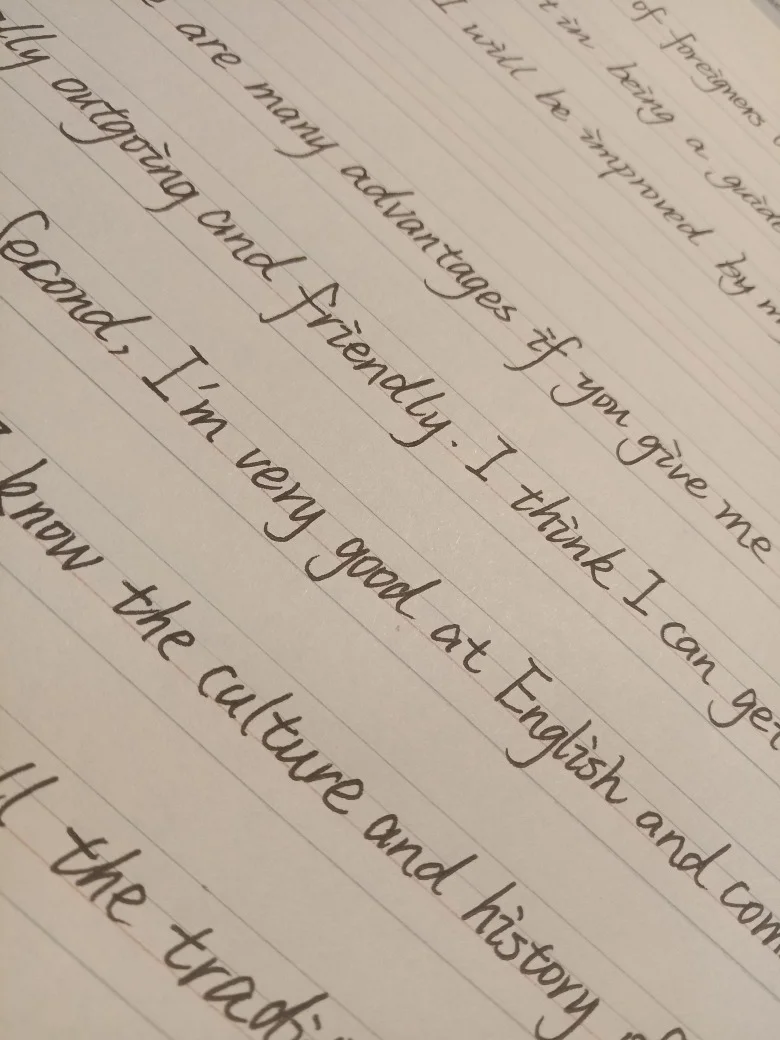 of foreigners
in being a
I will be improved by
are many advantages if you give me
outgoing and friendly. I think I can get
Second, I'm very good at English and
know the culture and history
the